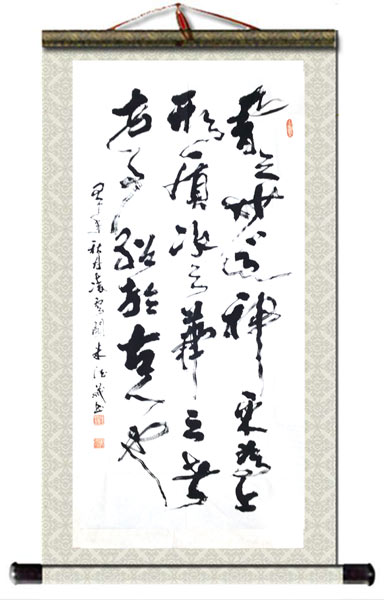 書之妙道神采為上
形質次之兼之者
方可紹於古人也
年秋月